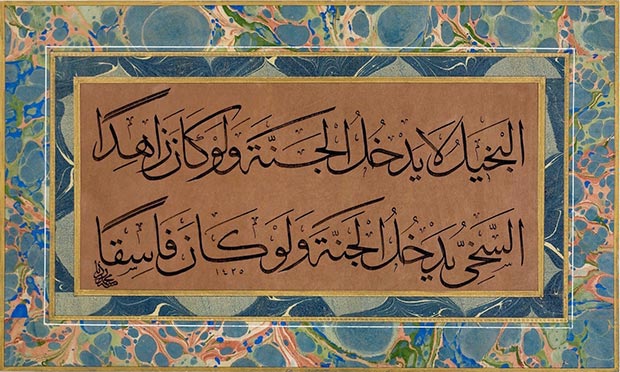 البَخيلُ لا يَدخُلُ الجَنّةَ وَلَو كانَ زاهِدًا
السَّخيُّ يَدخُلُ الجَنّةَ وَلَو كَانَ فاسِقًا
١٤٢٥